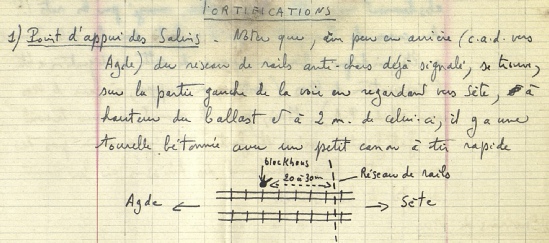 FORTIFICATIONS
1) Point d'appui des Salins. Noter que, un peu en arrière (c.a.d. vers
Agde) du réseau de rails anti-chars déjà signalé, se trouve,
sur la partie gauche de la voie en regardant vers Sète, à
hauteur du ballast et à 2 m. de celui-ci, il y a une
tourelle bétonnée avec un petit canon à tir rapide
blockhaus
20 à 30m
Réseau de rails
Agde ← → Sète